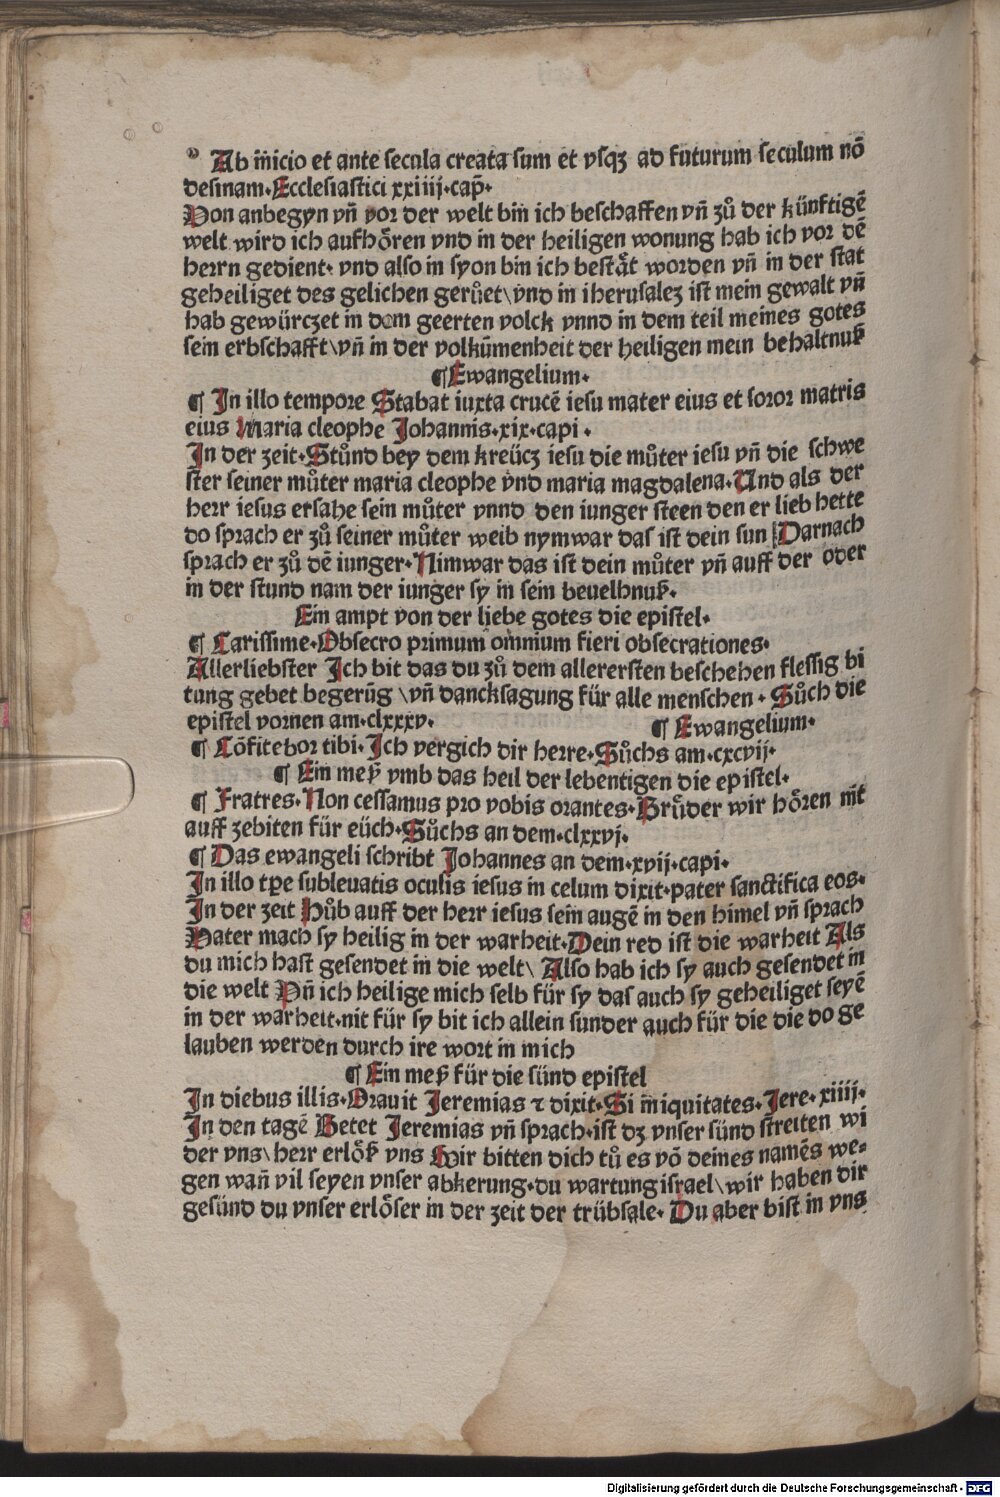 Ab inicio et ante secula creata sum et vsqꝫ ad futurum seculum nō
desinam. Ecclesiastici xxiiij. cap̄.
Von anbegyn vn̄ vor der welt bin ich beschaffen vn̄ zů der künftigē
welt wird ich aufhören vnd in der heiligen wonung hab ich vor dē
herrn gedient. vnd also in syon bin ich bestät worden vn̄ in der stat
geheiliget des gelichen gerůet \ vnd in iherusaleʒ ist mein gewalt vn̄
hab gewürczet in dem geerten volck vnnd in dem teil meines gotes
sein erbschafft \ vn̄ in der volkūmenheit der heiligen mein behaltnuß
¶ Ewangelium.
¶ In illo tempore Stabat iuxta crucē iesu mater eius et soror matris
eius Maria cleophe Johannis. xix. capi.
In der zeit. Stůnd bey dem kreücz iesu die můter iesu vn̄ die schwe
ster seiner můter maria cleophe vnd maria magdalena. Und als der
herr iesus ersahe sein můter vnnd den iunger steen den er lieb hette
do sprach er zů seiner můter weib nymwar das ist dein sun Darnach
sprach er zů dē iunger. Nimwar das ist dein můter vn̄ auff der oder
in der stund nam der iunger sy in sein beuelhnuß.
Ein ampt von der liebe gotes die epistel.
¶ Carissime. Obsecro primum omnium fieri obsecrationes.
Allerliebster Ich bit das du zů dem allerersten beschehen flessig bi
tung gebet begerūg \ vn̄ dancksagung für alle menschen. Sůch die
epistel vornen am. clxxxv. ¶ Ewangelium.
¶ Cōfitebor tibi. Ich vergich dir herre. Sůchs am. cxcvij.
¶ Ein meß vmb das heil der lebentigen die epistel.
¶ Fratres. Non cessamus pro vobis orantes. Brůder wir hören nit
auff zebiten für eüch. Sůchs an dem. clxxvj.
¶ Das ewangeli schribt Johannes an dem. xvij. capi.
In illo tp̄e subleuatis oculis iesus in celum dixit. pater sanctifica eos.
In der zeit Hůb auff der herr iesus sein augē in den himel vn̄ sprach
Vater mach sy heilig in der warheit. Dein red ist die warheit Als
du mich hast gesendet in die welt \ Also hab ich sy auch gesendet in
die welt Vn̄ ich heilige mich selb für sy das auch sy geheiliget seyē
in der warheit. nit für sy bit ich allein sunder auch für die die do ge
lauben werden durch ire wort in mich
¶ Ein meß für die sünd epistel
In diebus illis. Orauit Jeremias ⁊ dixit. Si iniquitates. Jere. xiiij.
In den tagē Betet Jeremias vn̄ sprach. ist dʒ vnser sünd streiten wi
der vns \ herr erlöß vns Wir bitten dich tů es vō deines namēs we⸗
gen wan̄ vil seyen vnser abkerung. du wartung israel \ wir haben dir
gesünd du vnser erlöser in der zeit der trübsale. Du aber bist in vns
Digitalisierung gefördert durch die Deutsche Forschungsgemeinschaft - DFG